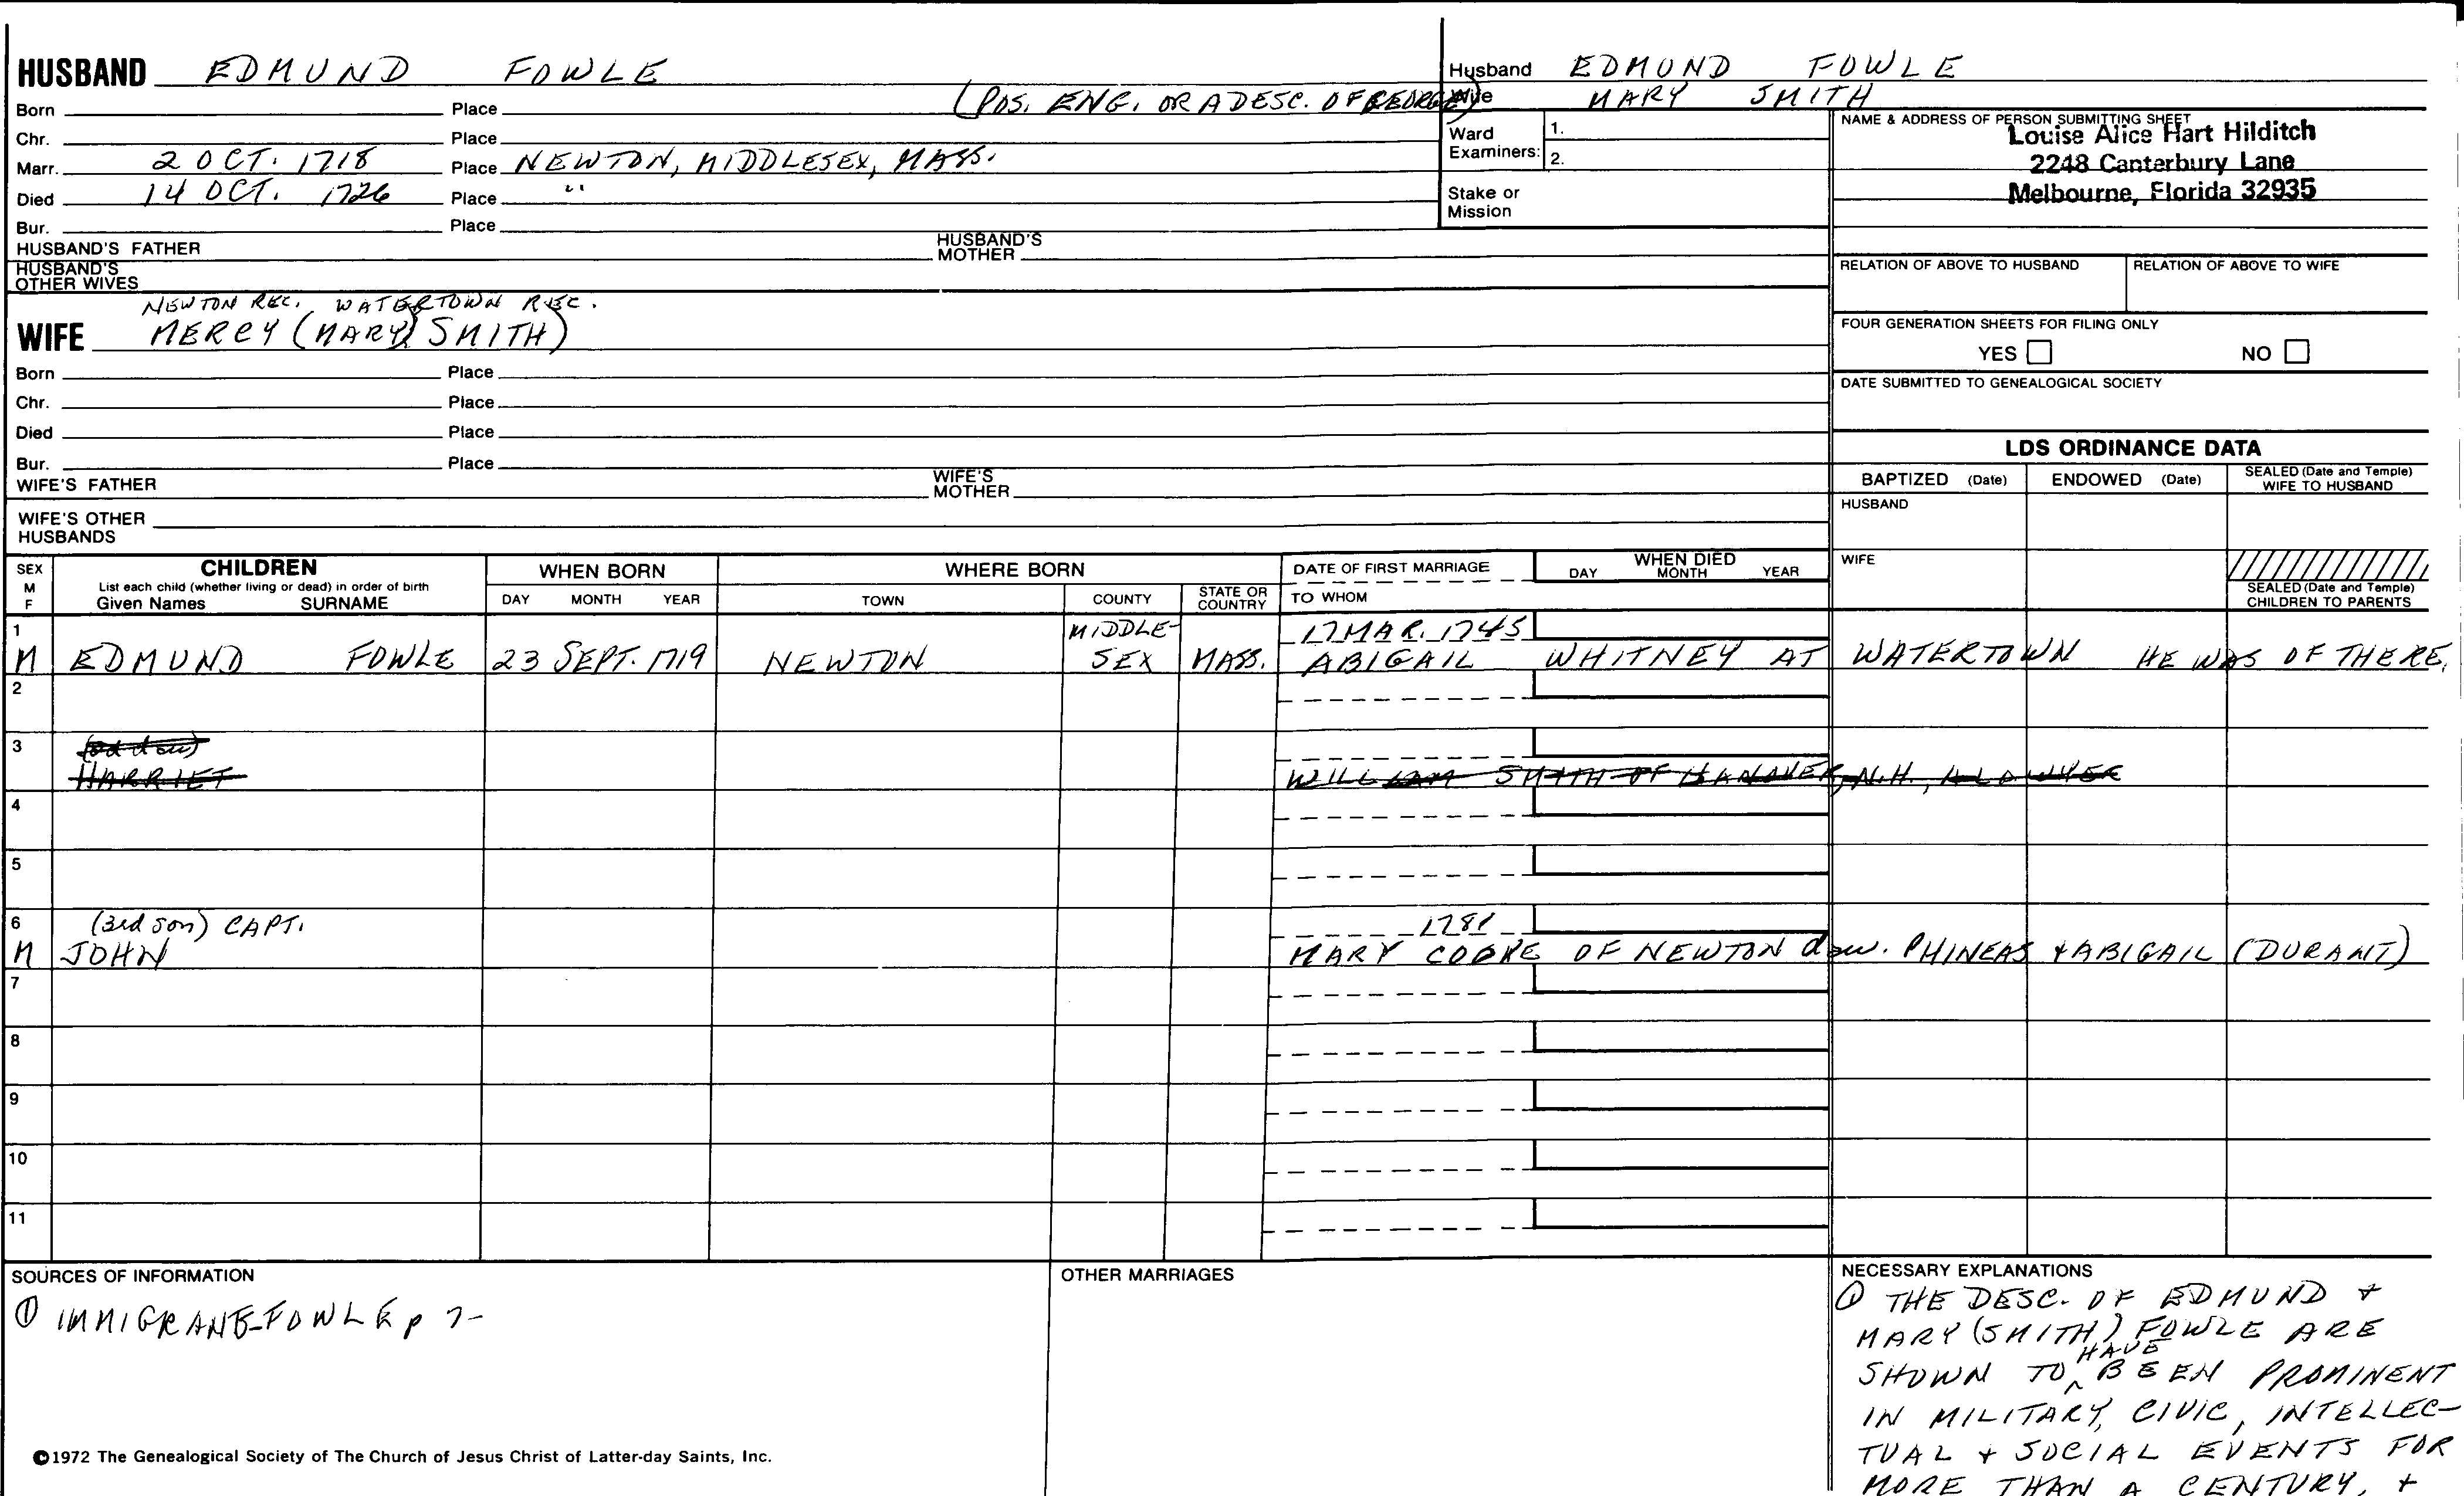 HUSBAND EDMUND FOWLE
(POS. ENG. OR A DESC. OF GEORGE)
Born Place
Chr. Place
Marr. 2 OCT. 1718 Place NEWTON, MIDDLESEX, MASS.
Died 14 OCT. 1726 Place "
Bur. Place
HUSBAND'S FATHER HUSBAND'S MOTHER
HUSBAND'S OTHER WIVES
NEWTON REC. WATERTOWN REC.
WIFE MERCY (MARY SMITH)
Born Place
Chr. Place
Died Place
Bur. Place
WIFE'S FATHER WIFE'S MOTHER
WIFE'S OTHER HUSBANDS
Husband EDMUND FOWLE
Wife MARY SMITH
Ward Examiners: 1.
2.
Stake or Mission
NAME & ADDRESS OF PERSON SUBMITTING SHEET
Louise Alice Hart Hilditch
2248 Canterbury Lane
Melbourne, Florida 32935
RELATION OF ABOVE TO HUSBAND RELATION OF ABOVE TO WIFE
FOUR GENERATION SHEETS FOR FILING ONLY
YES NO
DATE SUBMITTED TO GENEALOGICAL SOCIETY
LDS ORDINANCE DATA
BAPTIZED (Date) ENDOWED (Date) SEALED (Date and Temple) WIFE TO HUSBAND
HUSBAND
WIFE
SEALED (Date and Temple) CHILDREN TO PARENTS
SEX M F
CHILDREN
List each child (whether living or dead) in order of birth
Given Names SURNAME
WHEN BORN
DAY MONTH YEAR
WHERE BORN
TOWN COUNTY STATE OR COUNTRY
DATE OF FIRST MARRIAGE
TO WHOM
WHEN DIED
DAY MONTH YEAR
1 MIDDLE- 17 MAR. 1745
M EDMUND FOWLE 23 SEPT. 1719 NEWTON SEX MASS. ABIGAIL WHITNEY AT WATERTOWN HE WAS OF THERE.
2
3
HARRIET WILLIAM SMITH OF HANOVER, N.H., A LAWYER
4
5
6 (3rd son) CAPT. 1781
M JOHN MARY COOKE OF NEWTON daw. PHINEAS + ABIGAIL (DURANT)
7
8
9
10
11
SOURCES OF INFORMATION
① IMMIGRANT-FOWLE p 7-
OTHER MARRIAGES
NECESSARY EXPLANATIONS
① THE DESC. OF EDMUND +
MARY (SMITH) FOWLE ARE
SHOWN TO HAVE BEEN PROMINENT
IN MILITARY, CIVIC, INTELLEC-
TUAL + SOCIAL EVENTS FOR
MORE THAN A CENTURY, +
©1972 The Genealogical Society of The Church of Jesus Christ of Latter-day Saints, Inc.